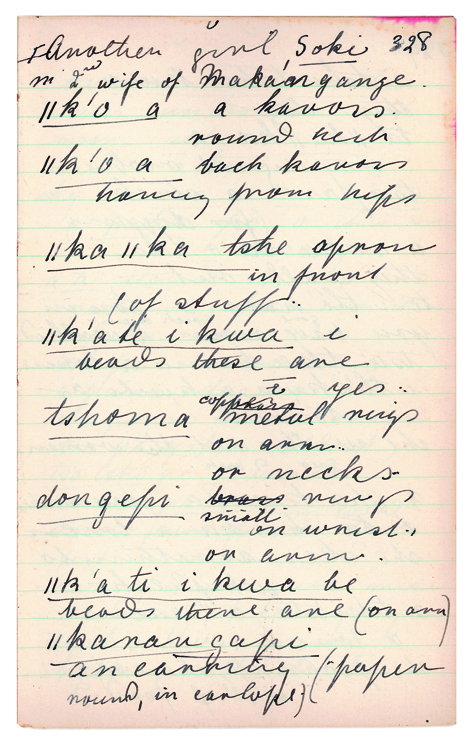 Another girl Soki 328
m 2nd wife of Makárgange.
ǁk'o a a kaross.
round neck
ǁk'o a back kaross
hanging from hips
ǁka ǁka tshe apron
in front
(of stuff..
ǁk'ate i kwa i
beads these are
i yes..
tshoma copper metal rings
on arm..
or necks.
dongepi brass rings
small on wrist..
or arm.
ǁk'a ti i kwa be
beads there are (on arm)
ǁkanan gapi
an earring (paper
round, in earlope)